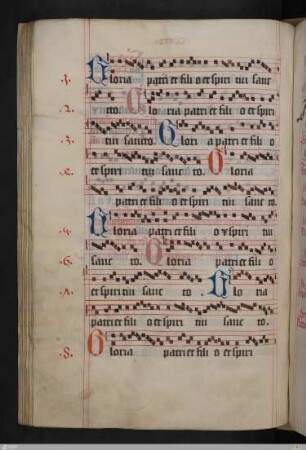 .1. Gloria patri et fili o et spiri tui sanc
.2. cto. Glo ria patri et fili o et spiri
.3. tui sancto. Glori a patri et fili o
.4. et spiri tui sanc to. Gloria
patri et fili o et spiri tui sanc to.
Gloria patri et fili o et spiri tui
.6. sanc to. Gloria patri et fili o
et spiri tui sanc to. Glo ria
patri et fili o et spiri tui sanc to.
.8. Gloria patri et fili o et spiri